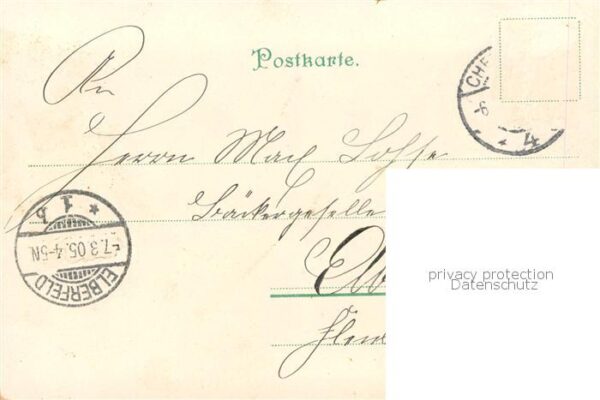 Postkarte.
CHE
-6
4
An
Herrn Max Lohse
Bäckergeselle
Elb
ELBERFELD
-7.3.05.4-5N.
* 1 b
privacy protection
Datenschutz